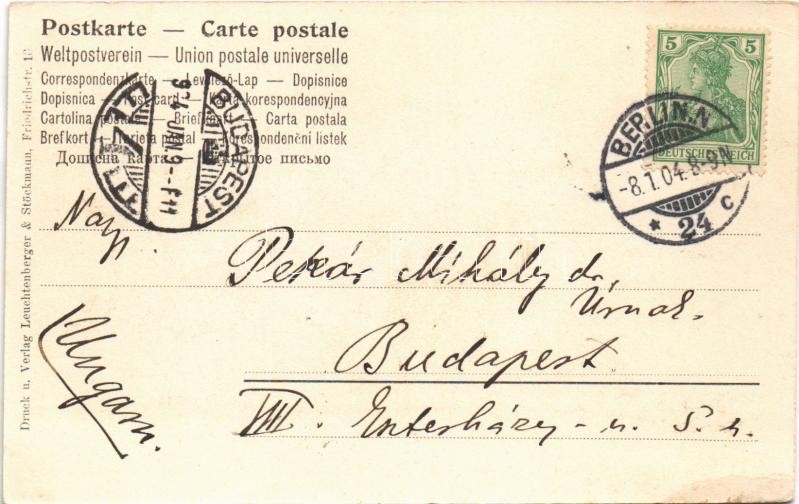 Postkarte — Carte postale
Weltpostverein — Union postale universelle
Correspondenzkarte — Levelező-Lap — Dopisnice
Dopisnica — Post card — Karta korespondencyjna
Cartolina postale — Briefkaart — Carta postala
Brefkort — Tarjeta postal — Korespondenční listek
Дописна карта — Открытое письмо
BUDAPEST
904 JAN 9 - F 11
5 5
DEUTSCHES REICH
BERLIN.N.
-8.1.04.8-9N.
* 24 c
Nagy.
Pekár Mihály dr.
Úrnak.
Budapest.
VIII. Eszterházy-u. 5. sz.
Ungarn.
Druck u. Verlag Leuchtenberger & Stöckmann, Friedrichstr.